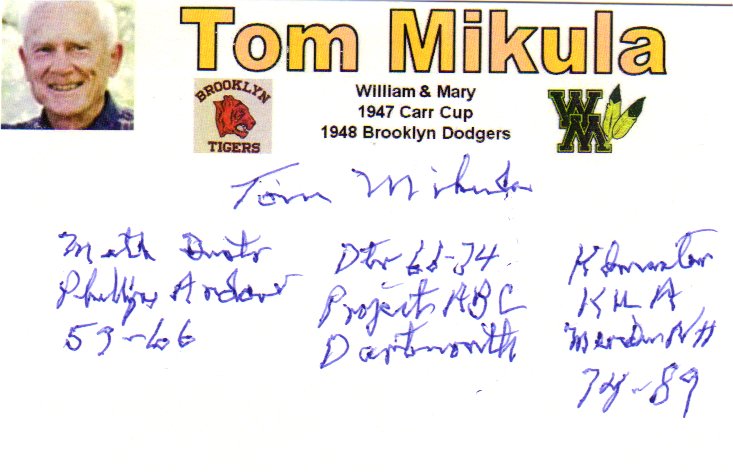 Tom Mikula
BROOKLYN
TIGERS
William & Mary
1947 Carr Cup
1948 Brooklyn Dodgers
WM
Tom Mikula
Math Instr
Phillips Andover
59-66
Dtr 66-74
Project ABC
Dartmouth
KUA
Meriden NH
74-89